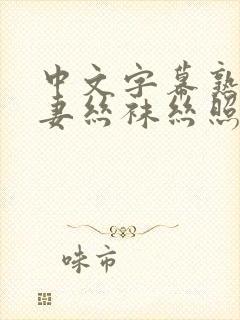 中文字幕熟
妻丝袜丝照
咪市